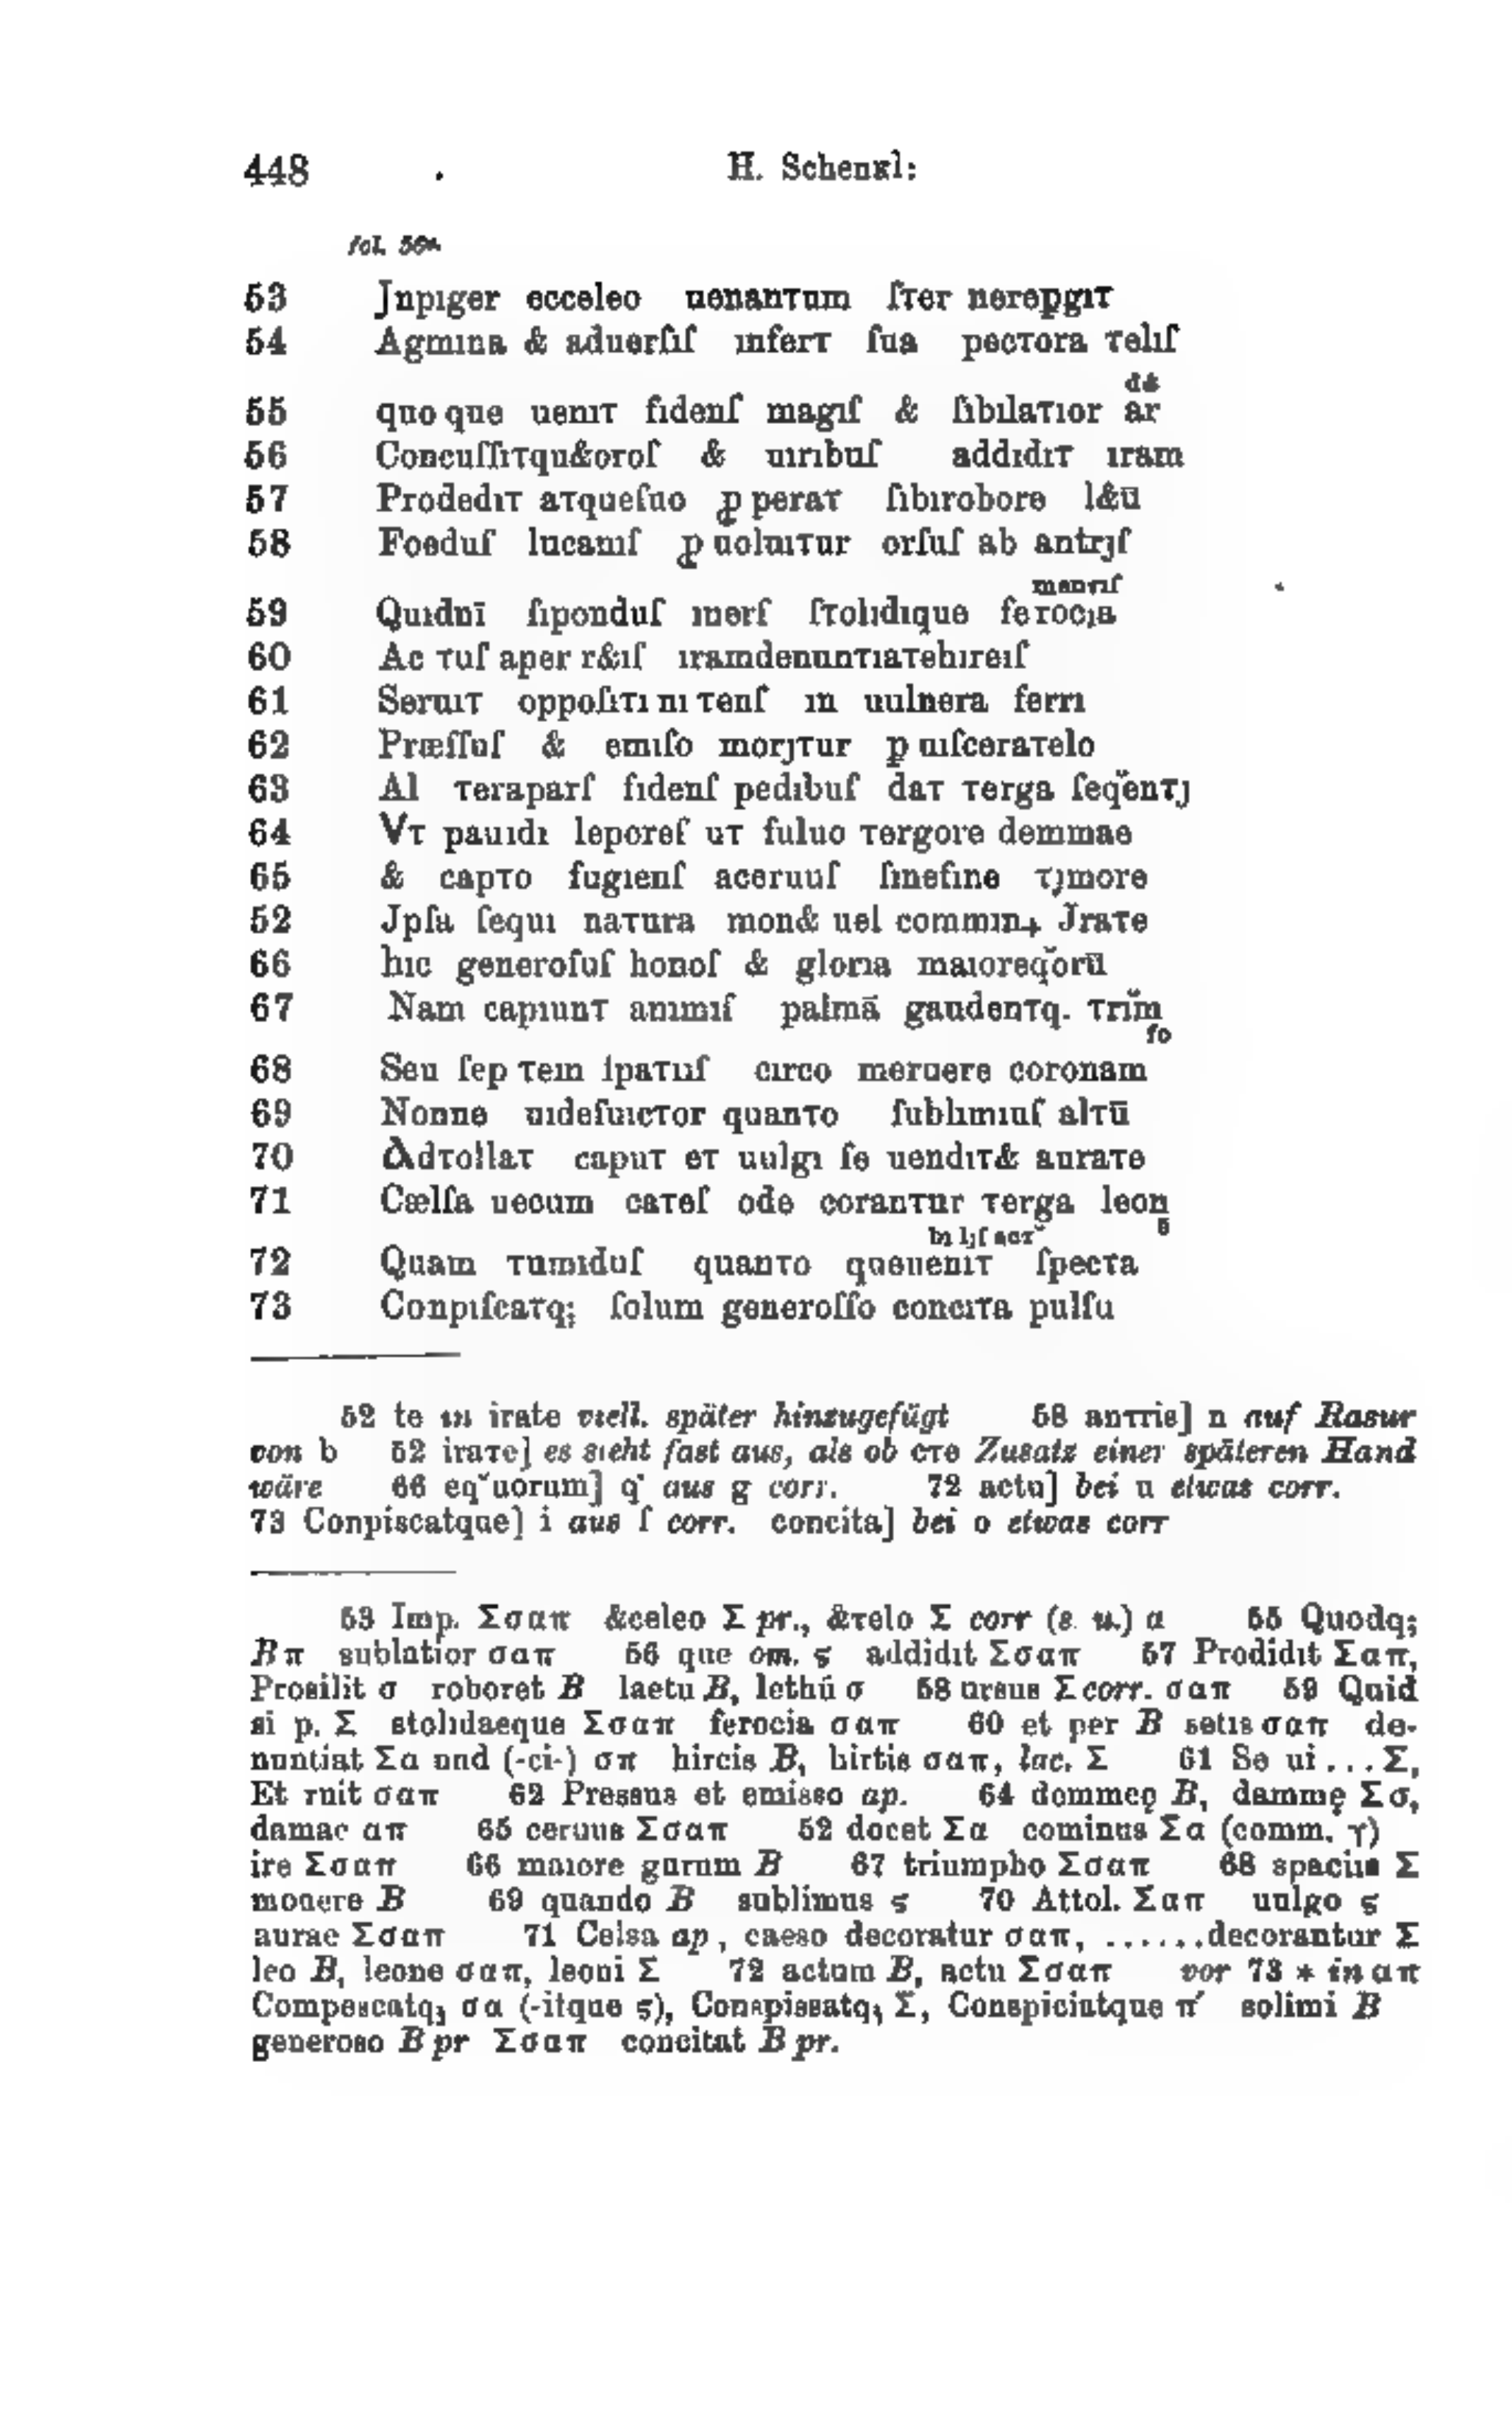 448 . H. Schenkl:
fol. 56ᵃ
53 Jnpıger ecceleo uenanτum ſτer nerepgıτ
54 Agmına & aduerſıſ ınferτ ſua pecτora τelıſ
d&
55 quo que uenıτ fidenſ magıſ & ſıbılaτıor ar
56 Concuſſıτqu&oroſ & uırıbuſ addıdıτ ıram
57 Prodedıτ aτqueſuo ꝓ peraτ ſıbırobore l&ū
58 Foeduſ lucanıſ ꝓ uoluıτur orſuſ ab antrȷſ
menτıſ
59 Quıdnī ſıponduſ ınerſ ſτolıdıque ferocıa
60 Ac τuſ aper r&ıſ ıramdenunτıaτehıreıſ
61 Seruıτ oppoſıτı nı τenſ ın uulnera ferrı
62 Præſſuſ & emıſo morȷτur ꝑ uıſceraτelo
63 Al τeraparſ fıdenſ pedıbuſ daτ τerga ſeq̆enτȷ
64 Vτ pauıdı leporeſ uτ fuluo τergore demmae
65 & capτo fugıenſ aceruuſ ſınefıne τȷmore
52 Jpſa ſequı naτura mon& uel commın+ Jraτe
66 hıc generoſuſ honoſ & glorıa maıoreq̆orū
67 Nam capıunτ anımıſ palmā gaudenτq. τrĭm
fo
68 Seu ſep τem ſpaτııſ cırco meruere coronam
69 Nonne uıdeſuıcτor quanτo ſublımıuſ alτū
70 Adτollaτ capuτ eτ uulgı ſe uendıτ& auraτe
71 Cælſa uecum caτeſ ode coranτur τerga leon
ın lȷſ acτ˘ e
72 Quam τumıduſ quanτo queuenıτ ſpecτa
73 Conpıſcaτq; ſolum generoſſo concıτa pulſu
52 te in irate viell. später hinzugefügt 58 anττis] n auf Rasur
von b 52 iraτe] es sieht fast aus, als ob cτe Zusatz einer späteren Hand
wäre 66 eq˘uorum] q˙ aus g corr. 72 actu] bei u etwas corr.
73 Conpiscatque] i aus ſ corr. concita] bei o etwas corr
53 Imp. Σσαπ &celeo Σ pr., &τelo Σ corr (s. u.) α 55 Quodq;
Bπ sublatior σαπ 56 que om. ς addidıt Σσαπ 57 Prodidıt Σαπ,
Prosilit σ roboret B laetu B, lethū σ 58 ursus Σ corr. σαπ 59 Quid
si p. Σ stolıdaeque Σσαπ ferocia σαπ 60 et per B setıs σαπ de-
nuntiat Σα und (-ci-) σπ hircis B, hirtis σαπ, lac. Σ 61 Se ui ... Σ,
Et ruit σαπ 62 Pressus et emisso ap. 64 dommeę B, dammę Σσ,
damae απ 65 ceruus Σσαπ 52 docet Σα cominus Σα (comm. γ)
ire Σσαπ 66 maıore gurum B 67 triumpho Σσαπ 68 spaciis Σ
mouere B 69 quando B sublimus ς 70 Attol. Σαπ uulgo ς
aurae Σσαπ 71 Celsa ap, caeso decoratur σαπ, ......decorantur Σ
leo B, leone σαπ, leoni Σ 72 actum B, actu Σσαπ vor 73 * in απ
Compescatq; σα (-itque ς), Conspissatq; Σ, Conspiciutque π´ solimi B
generoso B pr Σσαπ concitat B pr.